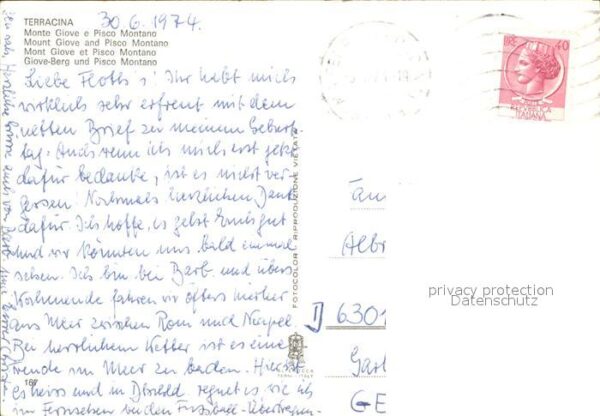 TERRACINA
30.6.1974.
Monte Giove e Pisco Montano
Mount Giove and Pisco Montano
Mont Giove et Pisco Montano
Giove-Berg und Pisco Montano
Liebe Floth's! Ihr habt mich
wirklich sehr erfreut mit dem
netten Brief zu meinem Geburts-
tag. Auch wenn ich mich erst jetzt
dafür bedanke, ist es nicht ver-
gessen! Nochmals herzlichen Dank
dafür. Ich hoffe, es geht Euch gut
und wir könnten uns bald einmal
sehen. Ich bin bei Barb. und übers
Wochenende fahren wir öfters hierher
ans Meer zwischen Rom und Neapel.
Bei herrlichem Wetter ist es eine
Freude im Meer zu baden. Hier ist
es heiss und in Dtschld. regnet es wie ich
im Fernsehen bei den Fussball-Übertragun-
gen sah. Herzliche Grüsse auch von
FOTOCOLOR - RIPRODUZIONE VIETATA
167
LIRE 40
REPUBBLICA
ITALIANA
Fam
Albr
D 6301
GE
privacy protection
Datenschutz